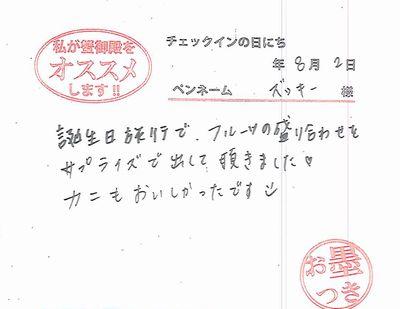 私が蟹御殿を
オススメ
します!!
チェックインの日にち
年 8月 2日
ペンネーム ズッキー 様
誕生日旅行で、フルーツの盛り合わせを
サプライズで出して頂きました♥
カニもおいしかったです
お墨
つき